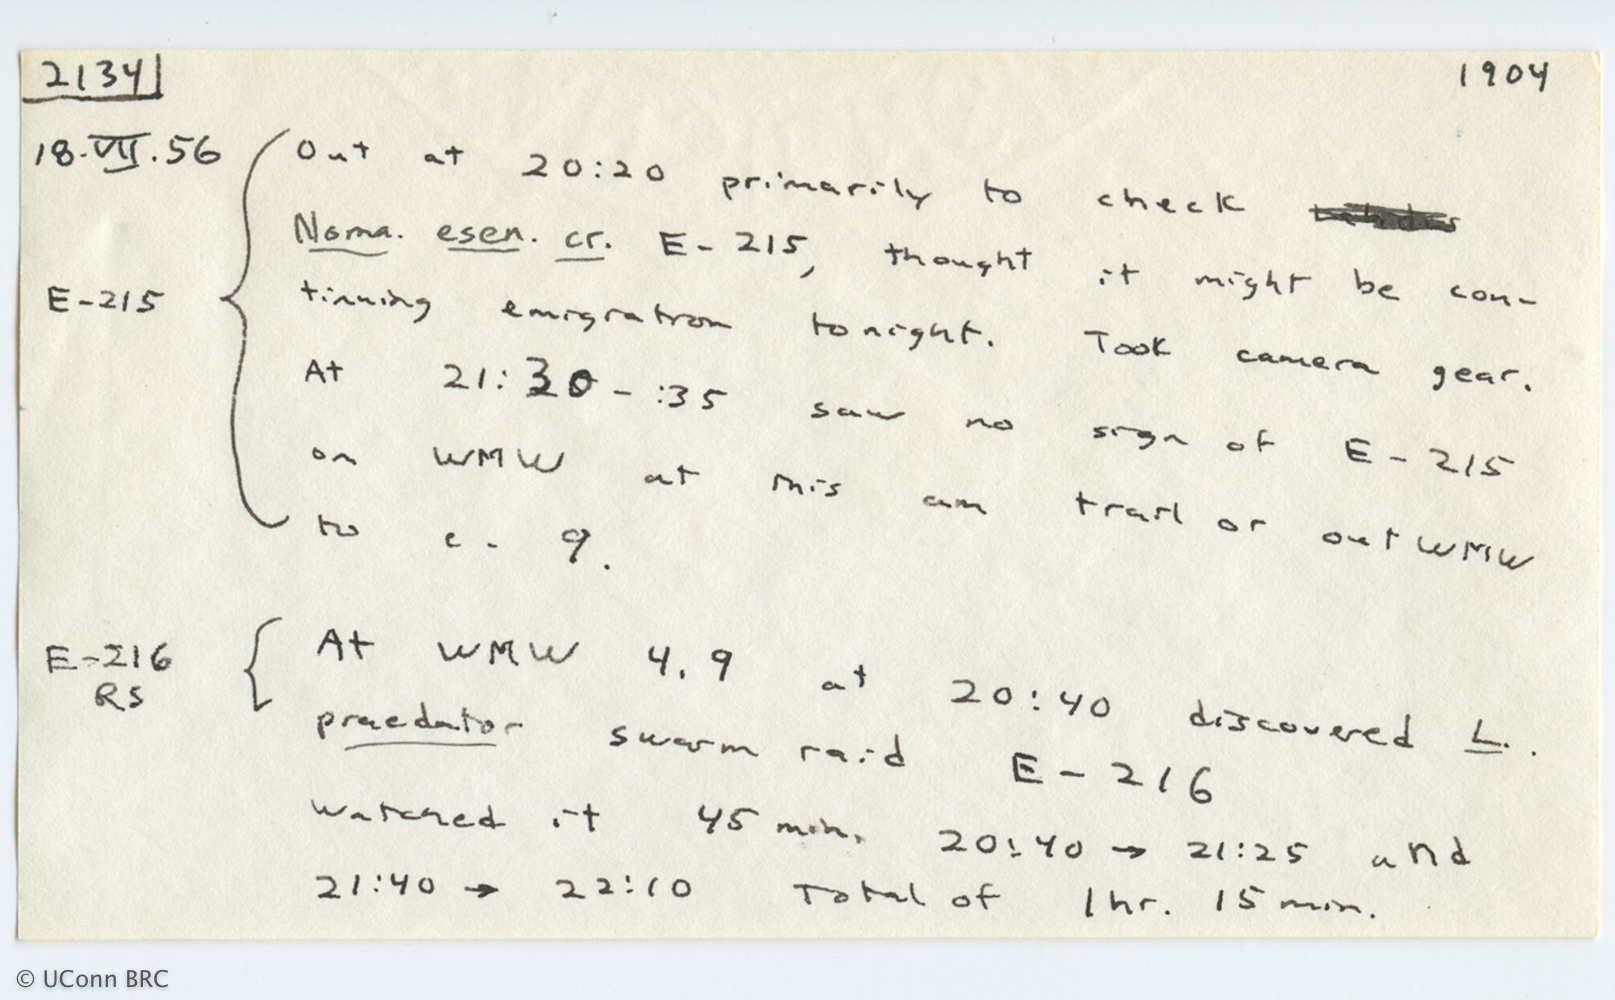 2134 1904
18.VII.56 Out at 20:20 primarily to check
Noma. esen. cr. E-215, thought it might be con-
E-215 tinuing emigration tonight. Took camera gear.
At 21:30-:35 saw no sign of E-215
on WMW at this am trail or out WMW
to c. 9.
E-216 At WMW 4.9 at 20:40 discovered L.
RS praedator swarm raid E-216
watched it 45 min. 20:40 → 21:25 and
21:40 → 22:10 Total of 1hr. 15 min.
© UConn BRC